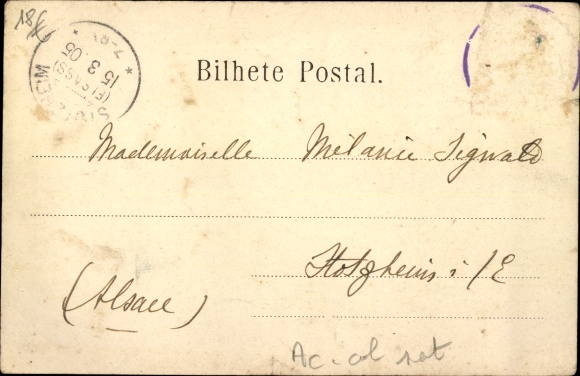 18/6
STOTZHEIM
(ELSASS)
15 3 05
7-8V
Bilhete Postal.
Mademoiselle Mélanie Sigwald
Stotzheim i/E
(Alsace)
Ac-col